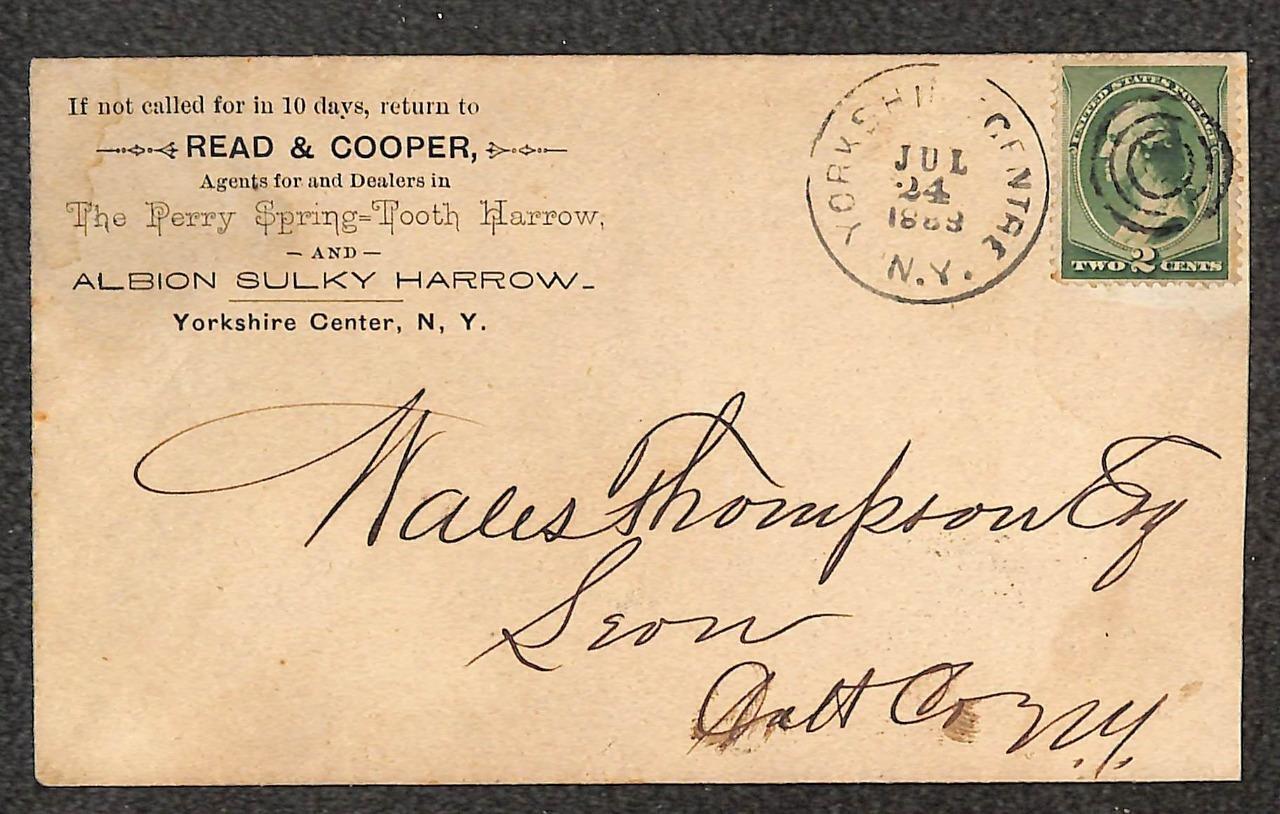 If not called for in 10 days, return to
READ & COOPER,
Agents for and Dealers in
The Perry Spring=Tooth Harrow,
— AND —
ALBION SULKY HARROW_
Yorkshire Center, N, Y.
YORKSHI CENTRE
JUL
24
1883
N.Y.
UNITED STATES POSTAGE
TWO 2 CENTS
Wales Thompson Esq
Leon
Catt Co N.Y.